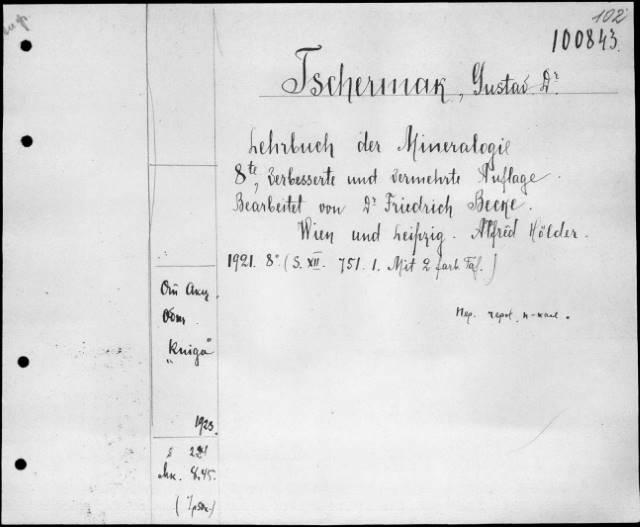 102
100843.
Tschermak, Gustav Dr.
Lehrbuch der Mineralogie
8te, verbesserte und vermehrte Auflage.
Bearbeitet von Dr Friedrich Becke.
Wien und Leipzig. Alfred Hölder.
1921. 8° (S. XII. 751. 1. Mit 2 farb. Taf.)
Общ.
"Kniga"
1923.